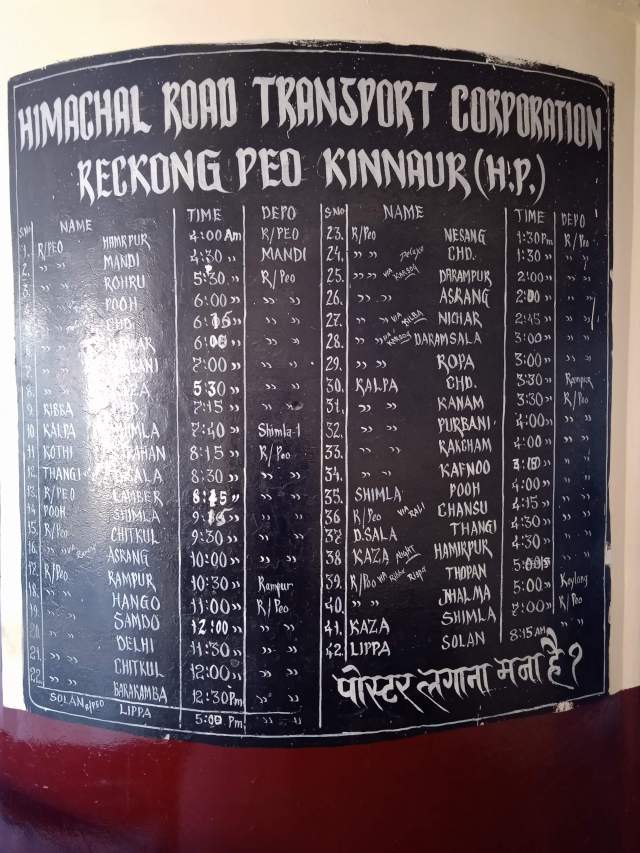 HIMACHAL ROAD TRANSPORT CORPORATION
RECKONG PEO KINNAUR (H.P.)
S.No NAME TIME DEPO
1. R/PEO HAMRPUR 4:00 Am R/PEO
2. " " MANDI 4:30 " MANDI
" " ROHRU 5:30 " R/Peo
" " POOH 6:00 " " "
" " CHD. 6:15 " " "
" " 6:00 " " "
" " 7:00 " " "
8. " " 5:30 " " "
9. RIBBA 7:15 " " "
10. KALPA SHIMLA 7:40 " Shimla-1
11. KOTHI 8:15 " R/Peo
12. THANGI 8:30 " " "
13. R/PEO CAMBER 8:45 " " "
14. POOH SHIMLA 9:15 " " "
15. R/Peo CHITKUL 9:30 " " "
16. " " via ASRANG 10:00 " " "
17. R/Peo RAMPUR 10:30 " Rampur
18. " " HANGO 11:00 " R/Peo
19. " " SAMDO 12:00 " " "
20. " " DELHI 11:30 " " "
21. " " CHITKUL 12:00 " " "
22. " " BARAKAMBA 12:30 Pm " "
SOLAN R/PEO LIPPA 5:00 Pm " "
S.No NAME TIME DEPO
23. R/Peo NESANG 1:30 Pm R/Peo
24. " " CHD. 1:30 " " "
25. " " via KARSOG DARAMPUR 2:00 " " "
26. " " ASRANG 2:00 " " "
27. " " via KILBA NICHAR 2:45 " " "
28. " " via DARAMSALA 3:00 " " "
29. " " ROPA 3:00 " " "
30. KALPA CHD. 3:30 " Rampur
31. " " KANAM 3:30 " R/Peo
32. " " PURBANI 4:00 " " "
33. " " RAKCHAM 4:00 " " "
34. " " KAFNOO " " "
35. SHIMLA POOH 4:00 " " "
36 R/Peo via RALI CHANSU 4:15 " " "
37 D.SALA THANGI 4:30 " " "
38 KAZA HAMIRPUR 4:30 " " "
39. R/Peo via THOPAN " " "
40. " " JHALMA 5:00 " Keylong
41. KAZA SHIMLA 7:00 " R/Peo
42. LIPPA SOLAN 8:15 AM " "
पोस्टर लगाना मना है ?